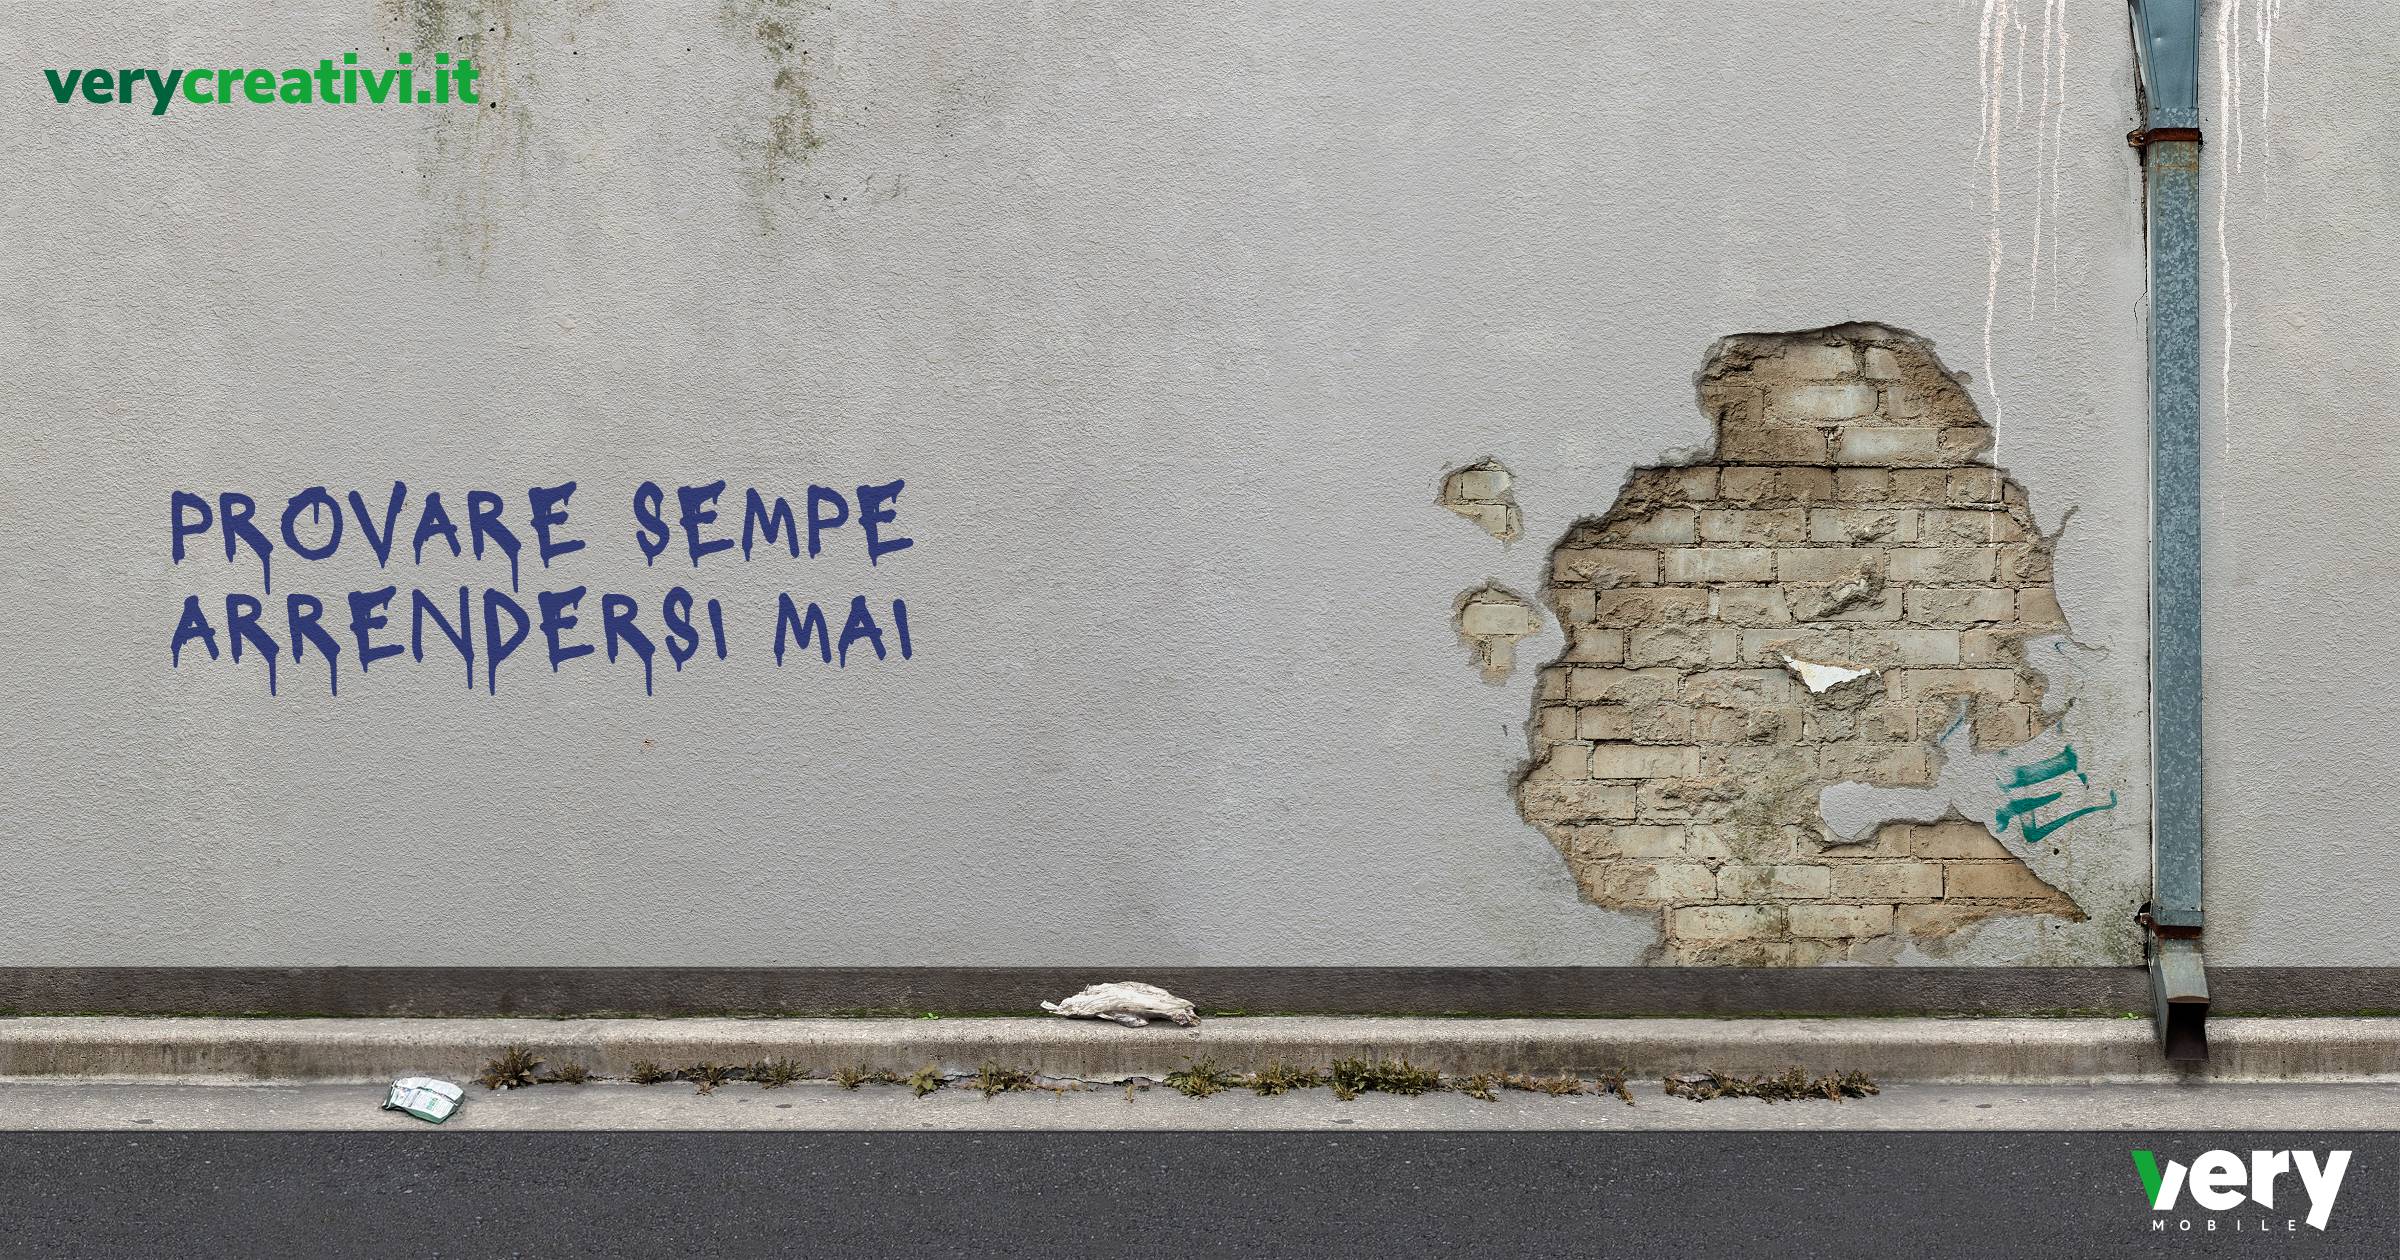 verycreativi.it
PROVARE SEMPE
ARRENDERSI MAI
very
MOBILE